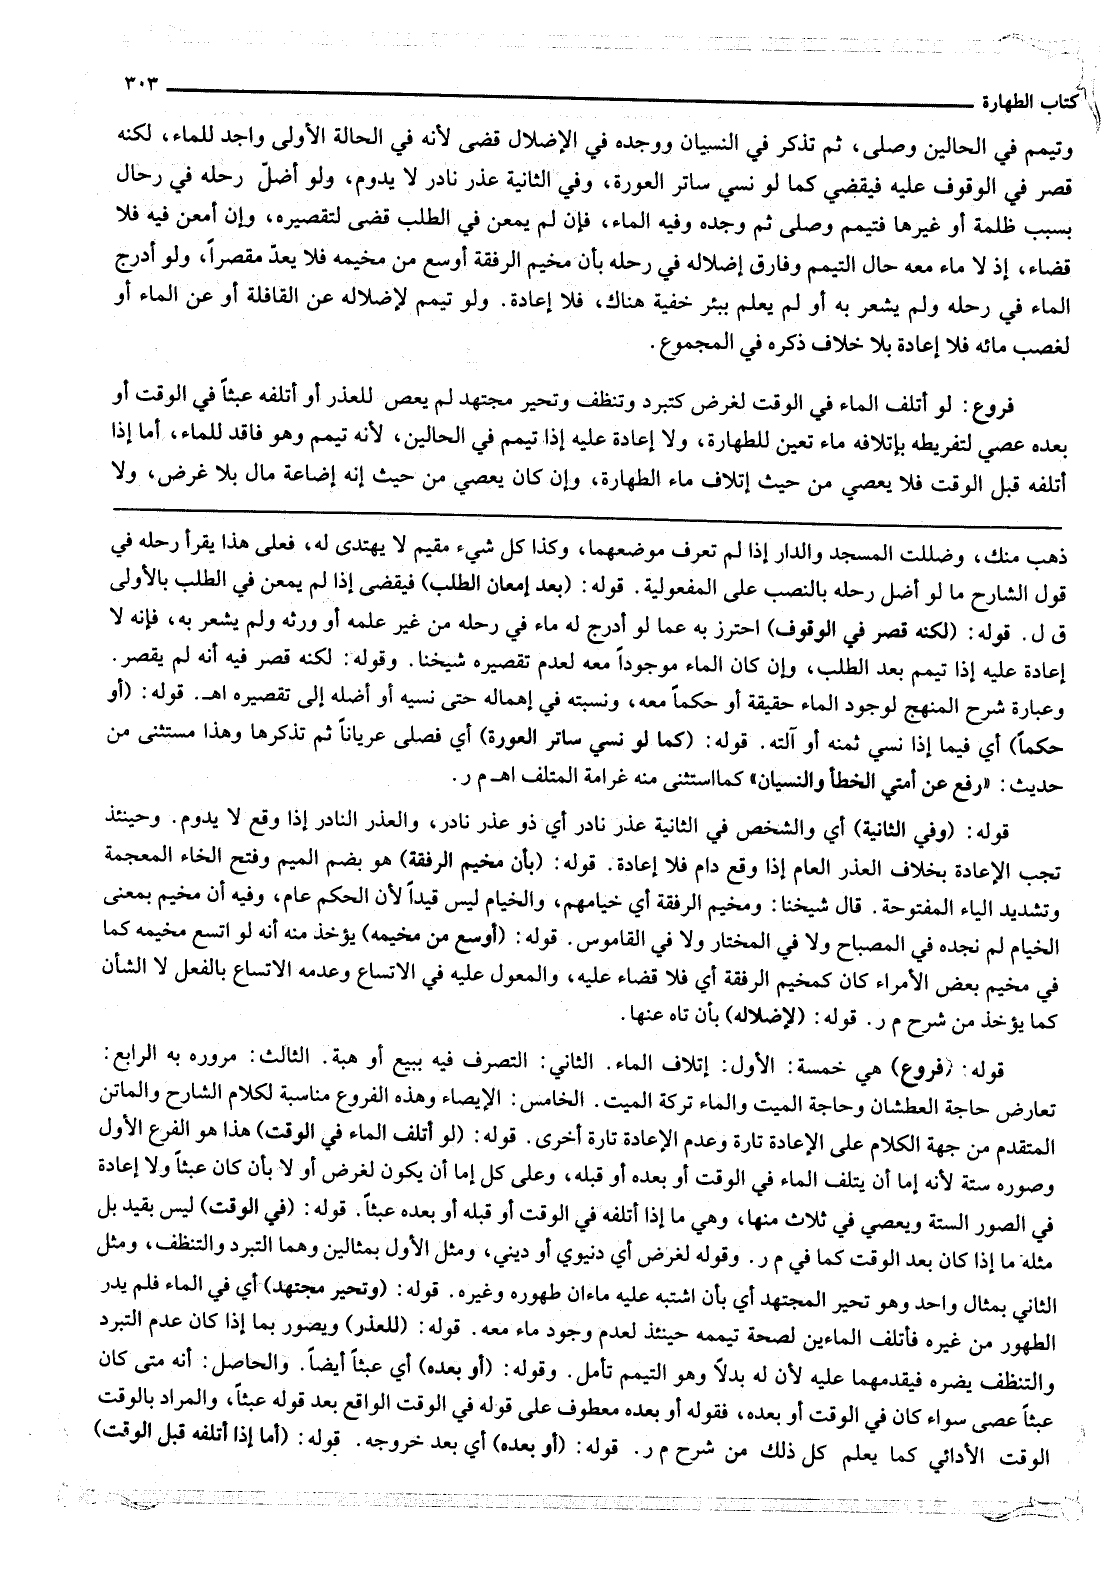 كتاب الطهارة ٣٠٣
وتيمم في الحالين وصلى، ثم تذكر في النسيان ووجده في الإضلال قضى لأنه في الحالة الأولى واجد للماء، لكنه
قصر في الوقوف عليه فيقضي كما لو نسي ساتر العورة، وفي الثانية عذر نادر لا يدوم، ولو أضلّ رحله في رحال
بسبب ظلمة أو غيرها فتيمم وصلى ثم وجده وفيه الماء، فإن لم يمعن في الطلب قضى لتقصيره، وإن أمعن فيه فلا
قضاء، إذ لا ماء معه حال التيمم وفارق إضلاله في رحله بأن مخيم الرفقة أوسع من مخيمه فلا يعدّ مقصراً، ولو أدرج
الماء في رحله ولم يشعر به أو لم يعلم ببئر خفية هناك، فلا إعادة. ولو تيمم لإضلاله عن القافلة أو عن الماء أو
لغصب مائه فلا إعادة بلا خلاف ذكره في المجموع.
فروع: لو أتلف الماء في الوقت لغرض كتبرد وتنظف وتحير مجتهد لم يعص للعذر أو أتلفه عبثاً في الوقت أو
بعده عصي لتفريطه بإتلافه ماء تعين للطهارة، ولا إعادة عليه إذا تيمم في الحالين، لأنه تيمم وهو فاقد للماء، أما إذا
أتلفه قبل الوقت فلا يعصي من حيث إتلاف ماء الطهارة، وإن كان يعصي من حيث إنه إضاعة مال بلا غرض، ولا
ذهب منك، وضللت المسجد والدار إذا لم تعرف موضعهما، وكذا كل شيء مقيم لا يهتدى له، فعلى هذا يقرأ رحله في
قول الشارح ما لو أضل رحله بالنصب على المفعولية. قوله: (بعد إمعان الطلب) فيقضى إذا لم يمعن في الطلب بالأولى
ق ل. قوله: (لكنه قصر في الوقوف) احترز به عما لو أدرج له ماء في رحله من غير علمه أو ورثه ولم يشعر به، فإنه لا
إعادة عليه إذا تيمم بعد الطلب، وإن كان الماء موجوداً معه لعدم تقصيره شيخنا. وقوله: لكنه قصر فيه أنه لم يقصر.
وعبارة شرح المنهج لوجود الماء حقيقة أو حكماً معه، ونسبته في إهماله حتى نسيه أو أضله إلى تقصيره اهـ. قوله: (أو
حكماً) أي فيما إذا نسي ثمنه أو آلته. قوله: (كما لو نسي ساتر العورة) أي فصلى عرياناً ثم تذكرها وهذا مستثنى من
حديث: «رفع عن أمتي الخطأ والنسيان» كمااستثنى منه غرامة المتلف اهـ م ر.
قوله: (وفي الثانية) أي والشخص في الثانية عذر نادر أي ذو عذر نادر، والعذر النادر إذا وقع لا يدوم. وحينئذ
تجب الإعادة بخلاف العذر العام إذا وقع دام فلا إعادة. قوله: (بأن مخيم الرفقة) هو بضم الميم وفتح الخاء المعجمة
وتشديد الياء المفتوحة. قال شيخنا: ومخيم الرفقة أي خيامهم، والخيام ليس قيداً لأن الحكم عام، وفيه أن مخيم بمعنى
الخيام لم نجده في المصباح ولا في المختار ولا في القاموس. قوله: (أوسع من مخيمه) يؤخذ منه أنه لو اتسع مخيمه كما
في مخيم بعض الأمراء كان كمخيم الرفقة أي فلا قضاء عليه، والمعول عليه في الاتساع وعدمه الاتساع بالفعل لا الشأن
كما يؤخذ من شرح م ر. قوله: (لإضلاله) بأن تاه عنها.
قوله: (فروع) هي خمسة: الأول: إتلاف الماء. الثاني: التصرف فيه ببيع أو هبة. الثالث: مروره به الرابع:
تعارض حاجة العطشان وحاجة الميت والماء تركة الميت. الخامس: الإيصاء وهذه الفروع مناسبة لكلام الشارح والماتن
المتقدم من جهة الكلام على الإعادة تارة وعدم الإعادة تارة أخرى. قوله: (لو أتلف الماء في الوقت) هذا هو الفرع الأول
وصوره ستة لأنه إما أن يتلف الماء في الوقت أو بعده أو قبله، وعلى كل إما أن يكون لغرض أو لا بأن كان عبثاً ولا إعادة
في الصور الستة ويعصي في ثلاث منها، وهي ما إذا أتلفه في الوقت أو قبله أو بعده عبثاً. قوله: (في الوقت) ليس بقيد بل
مثله ما إذا كان بعد الوقت كما في م ر. وقوله لغرض أي دنيوي أو ديني، ومثل الأول بمثالين وهما التبرد والتنظف، ومثل
الثاني بمثال واحد وهو تحير المجتهد أي بأن اشتبه عليه ماءان طهوره وغيره. قوله: (وتحير مجتهد) أي في الماء فلم يدر
الطهور من غيره فأتلف الماءين لصحة تيممه حينئذ لعدم وجود ماء معه. قوله: (للعذر) ويصور بما إذا كان عدم التبرد
والتنظف يضره فيقدمهما عليه لأن له بدلاً وهو التيمم تأمل. وقوله: (أو بعده) أي عبثاً أيضاً. والحاصل: أنه متى كان
عبثاً عصى سواء كان في الوقت أو بعده، فقوله أو بعده معطوف على قوله في الوقت الواقع بعد قوله عبثاً، والمراد بالوقت
الوقت الأدائي كما يعلم كل ذلك من شرح م ر. قوله: (أو بعده) أي بعد خروجه. قوله: (أما إذا أتلفه قبل الوقت)